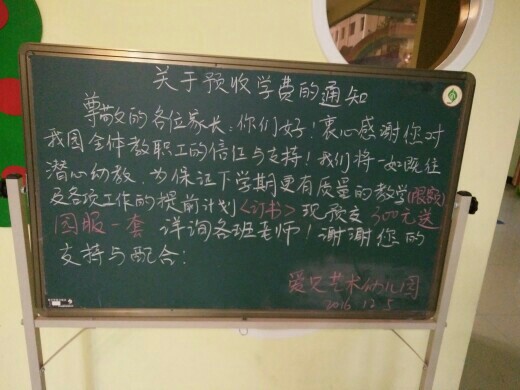 关于预收学费的通知
尊敬的各位家长:你们好!衷心感谢您对
我园全体教职工的信任与支持!我们将一如既往
潜心幼教,为保证下学期更有质量的教学
及各项工作的提前计划<订书>现预交300元送
园服一套 详询各班老师!谢谢您的
支持与配合!
艺术幼儿园
2016 12 5